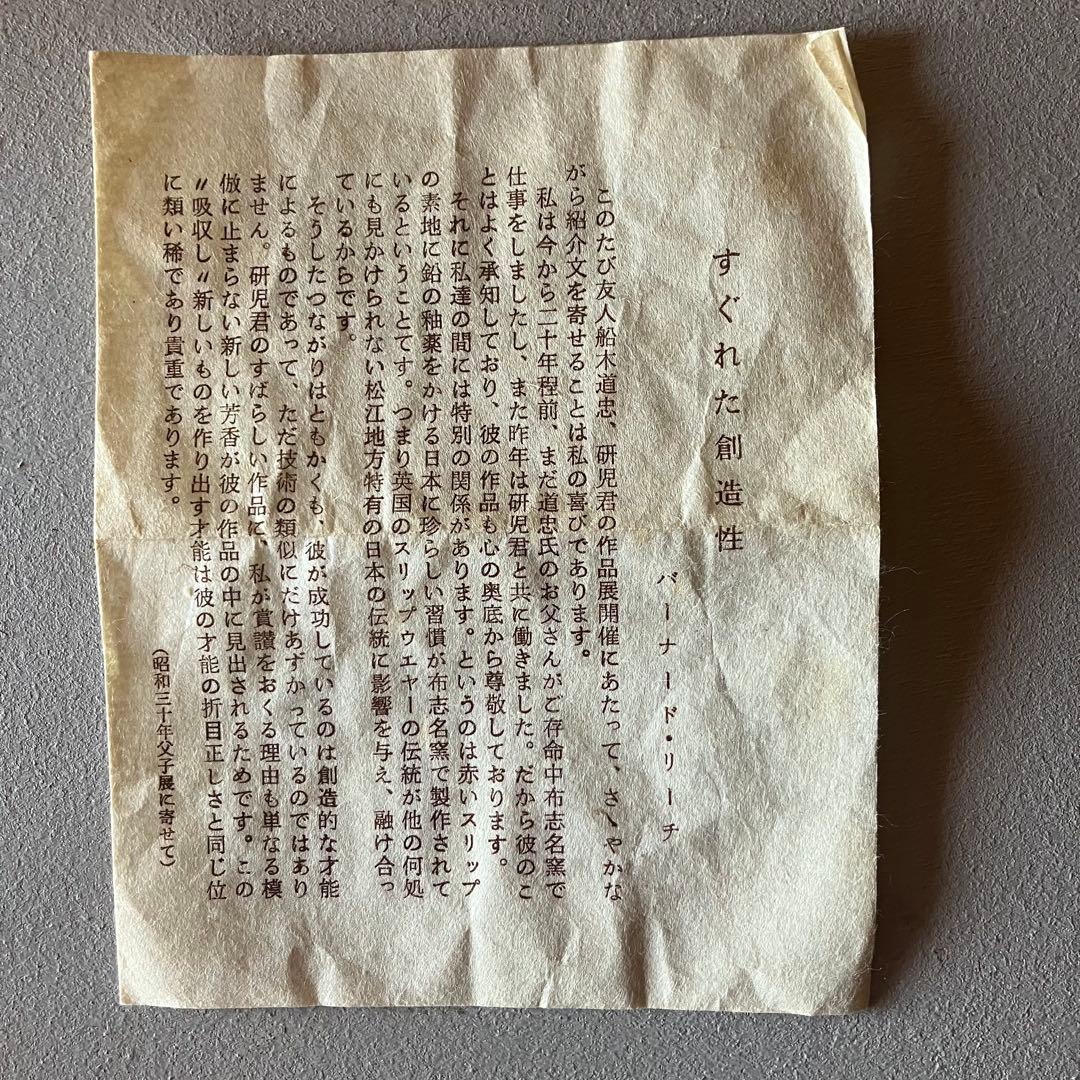 すぐれた創造性
バーナード・リーチ
このたび友人船木道忠、研児君の作品展開催にあたって、さゝやかな
がら紹介文を寄せることは私の喜びであります。
私は今から二十年程前、まだ道忠氏のお父さんがご存命中布志名窯で
仕事をしましたし、また昨年は研児君と共に働きました。だから彼のこ
とはよく承知しており、彼の作品も心の奥底から尊敬しております。
それに私達の間には特別の関係があります。というのは赤いスリップ
の素地に鉛の釉薬をかける日本に珍らしい習慣が布志名窯で製作されて
いるということてす。つまり英国のスリップウエヤーの伝統が他の何処
にも見かけられない松江地方特有の日本の伝統に影響を与え、融け合っ
ているからです。
そうしたつながりはともかくも、彼が成功しているのは創造的な才能
によるものであって、ただ技術の類似にだけあずかっているのではあり
ません。研児君のすばらしい作品に、私が賞讃をおくる理由も単なる模
倣に止まらない新しい芳香が彼の作品の中に見出されるためです。この
〃吸収し〃新しいものを作り出す才能は彼の才能の折目正しさと同じ位
に類い稀であり貴重であります。
(昭和三十年父子展に寄せて)